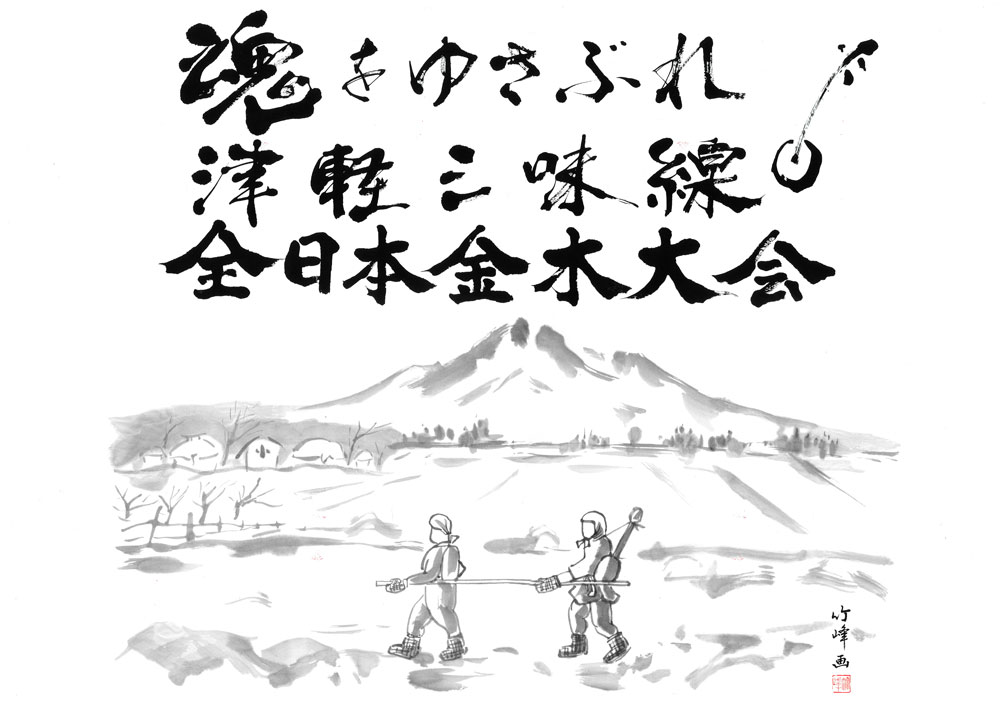 魂をゆさぶれ
津軽三味線
全日本金木大会
竹峰画